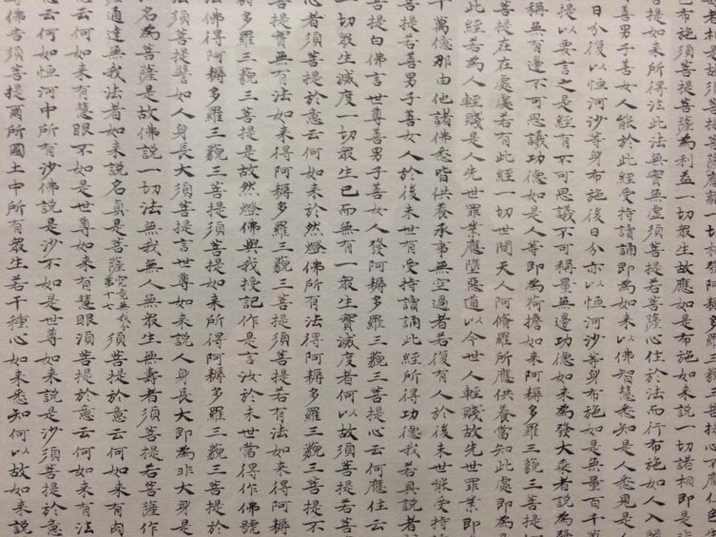 者相是故須菩提菩薩應離一切相發阿耨多羅三藐三菩提心不應住色生
色布施須菩提菩薩為利益一切眾生故應如是布施如來說一切諸相即是非
菩提如來所得法此法無實無虛須菩提若菩薩心住於法而行布施如人入闇
善男子善女人能於此經受持讀誦即為如來以佛智慧悉知是人悉見是人
日分復以恒河沙等身布施後日分亦以恒河沙等身布施如是無量百千萬
提以要言之是經有不可思議不可稱量無邊功德如來為發大乘者說為發
稱無有邊不可思議功德如是人等即為荷擔如來阿耨多羅三藐三菩提何
菩提在在處處若有此經一切世間天人阿脩羅所應供養當知此處即為是
此經若為人輕賤是人先世罪業應墮惡道以今世人輕賤故先世罪業即
千萬億那由他諸佛悉皆供養承事無空過者若復有人於後末世能受持
菩提若善男子善女人於後末世有受持讀誦此經所得功德我若具說者
提白佛言世尊善男子善女人發阿耨多羅三藐三菩提心云何應住云
一切眾生滅度一切眾生已而無有一眾生實滅度者何以故須菩提若菩
心者須菩提於意云何如來於然燈佛所有法得阿耨多羅三藐三菩提不
菩提實無有法如來得阿耨多羅三藐三菩提須菩提若有法如來得阿耨
多羅三藐三菩提是故然燈佛與我授記作是言汝於來世當得作佛號
法佛得阿耨多羅三藐三菩提須菩提如來所得阿耨多羅三藐三菩提於
須菩提譬如人身長大須菩提言世尊如來說人身長大即為非大身是
名為菩薩是故佛說一切法無我無人無眾生無壽者須菩提若菩薩作
通達無我法者如來說名真是菩薩究竟無我分第十七須菩提於意云何如來有肉
云何如來有慧眼不如是世尊如來有慧眼須菩提於意云何如來有法
意云何如恒河中所有沙佛說是沙不如是世尊如來說是沙須菩提於意
佛告須菩提爾所國土中所有眾生若干種心如來悉知何以故如來說